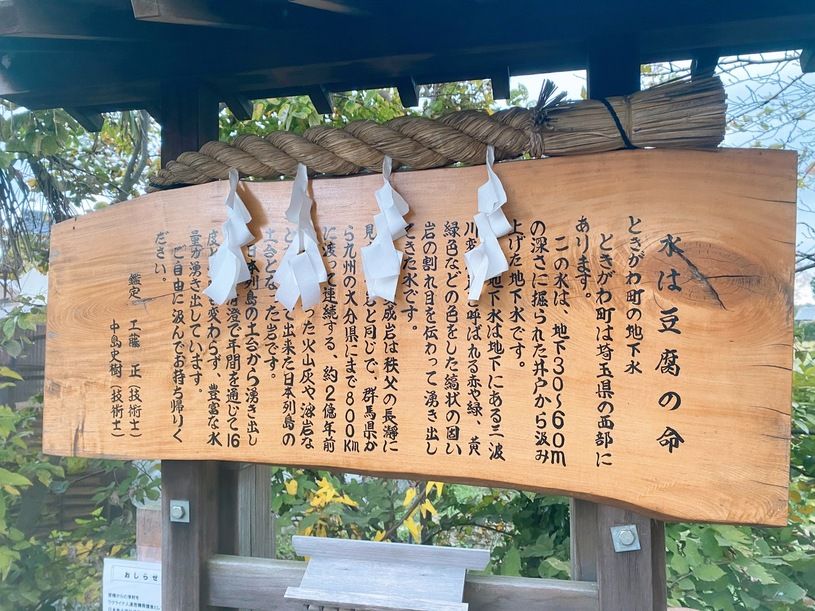 水は豆腐の命
ときがわ町の地下水
ときがわ町は埼玉県の西部に
あります。
この水は、地下30～60m
の深さに掘られた井戸から汲み
上げた地下水です。
地下水は地下にある三波
川変 呼ばれる赤や緑、黄
緑色などの色をした縞状の固い
岩の割れ目を伝わって湧き出し
てきた水です。
変成岩は秩父の長瀞に
見 と同じで、群馬県か
ら九州の大分県にまで800Km
に渡って連続する、約2億年前
と った火山灰や泥岩な
ど で出来た日本列島の
土台となった岩です。
日本列島の土台から湧き出し
清澄で年間を通じて16
度と変わらず、豊富な水
量が湧き出しています。
ご自由に汲んでお持ち帰りく
ださい。
鑑定 工藤 正(技術士)
中島史樹(技術士)
おしらせ